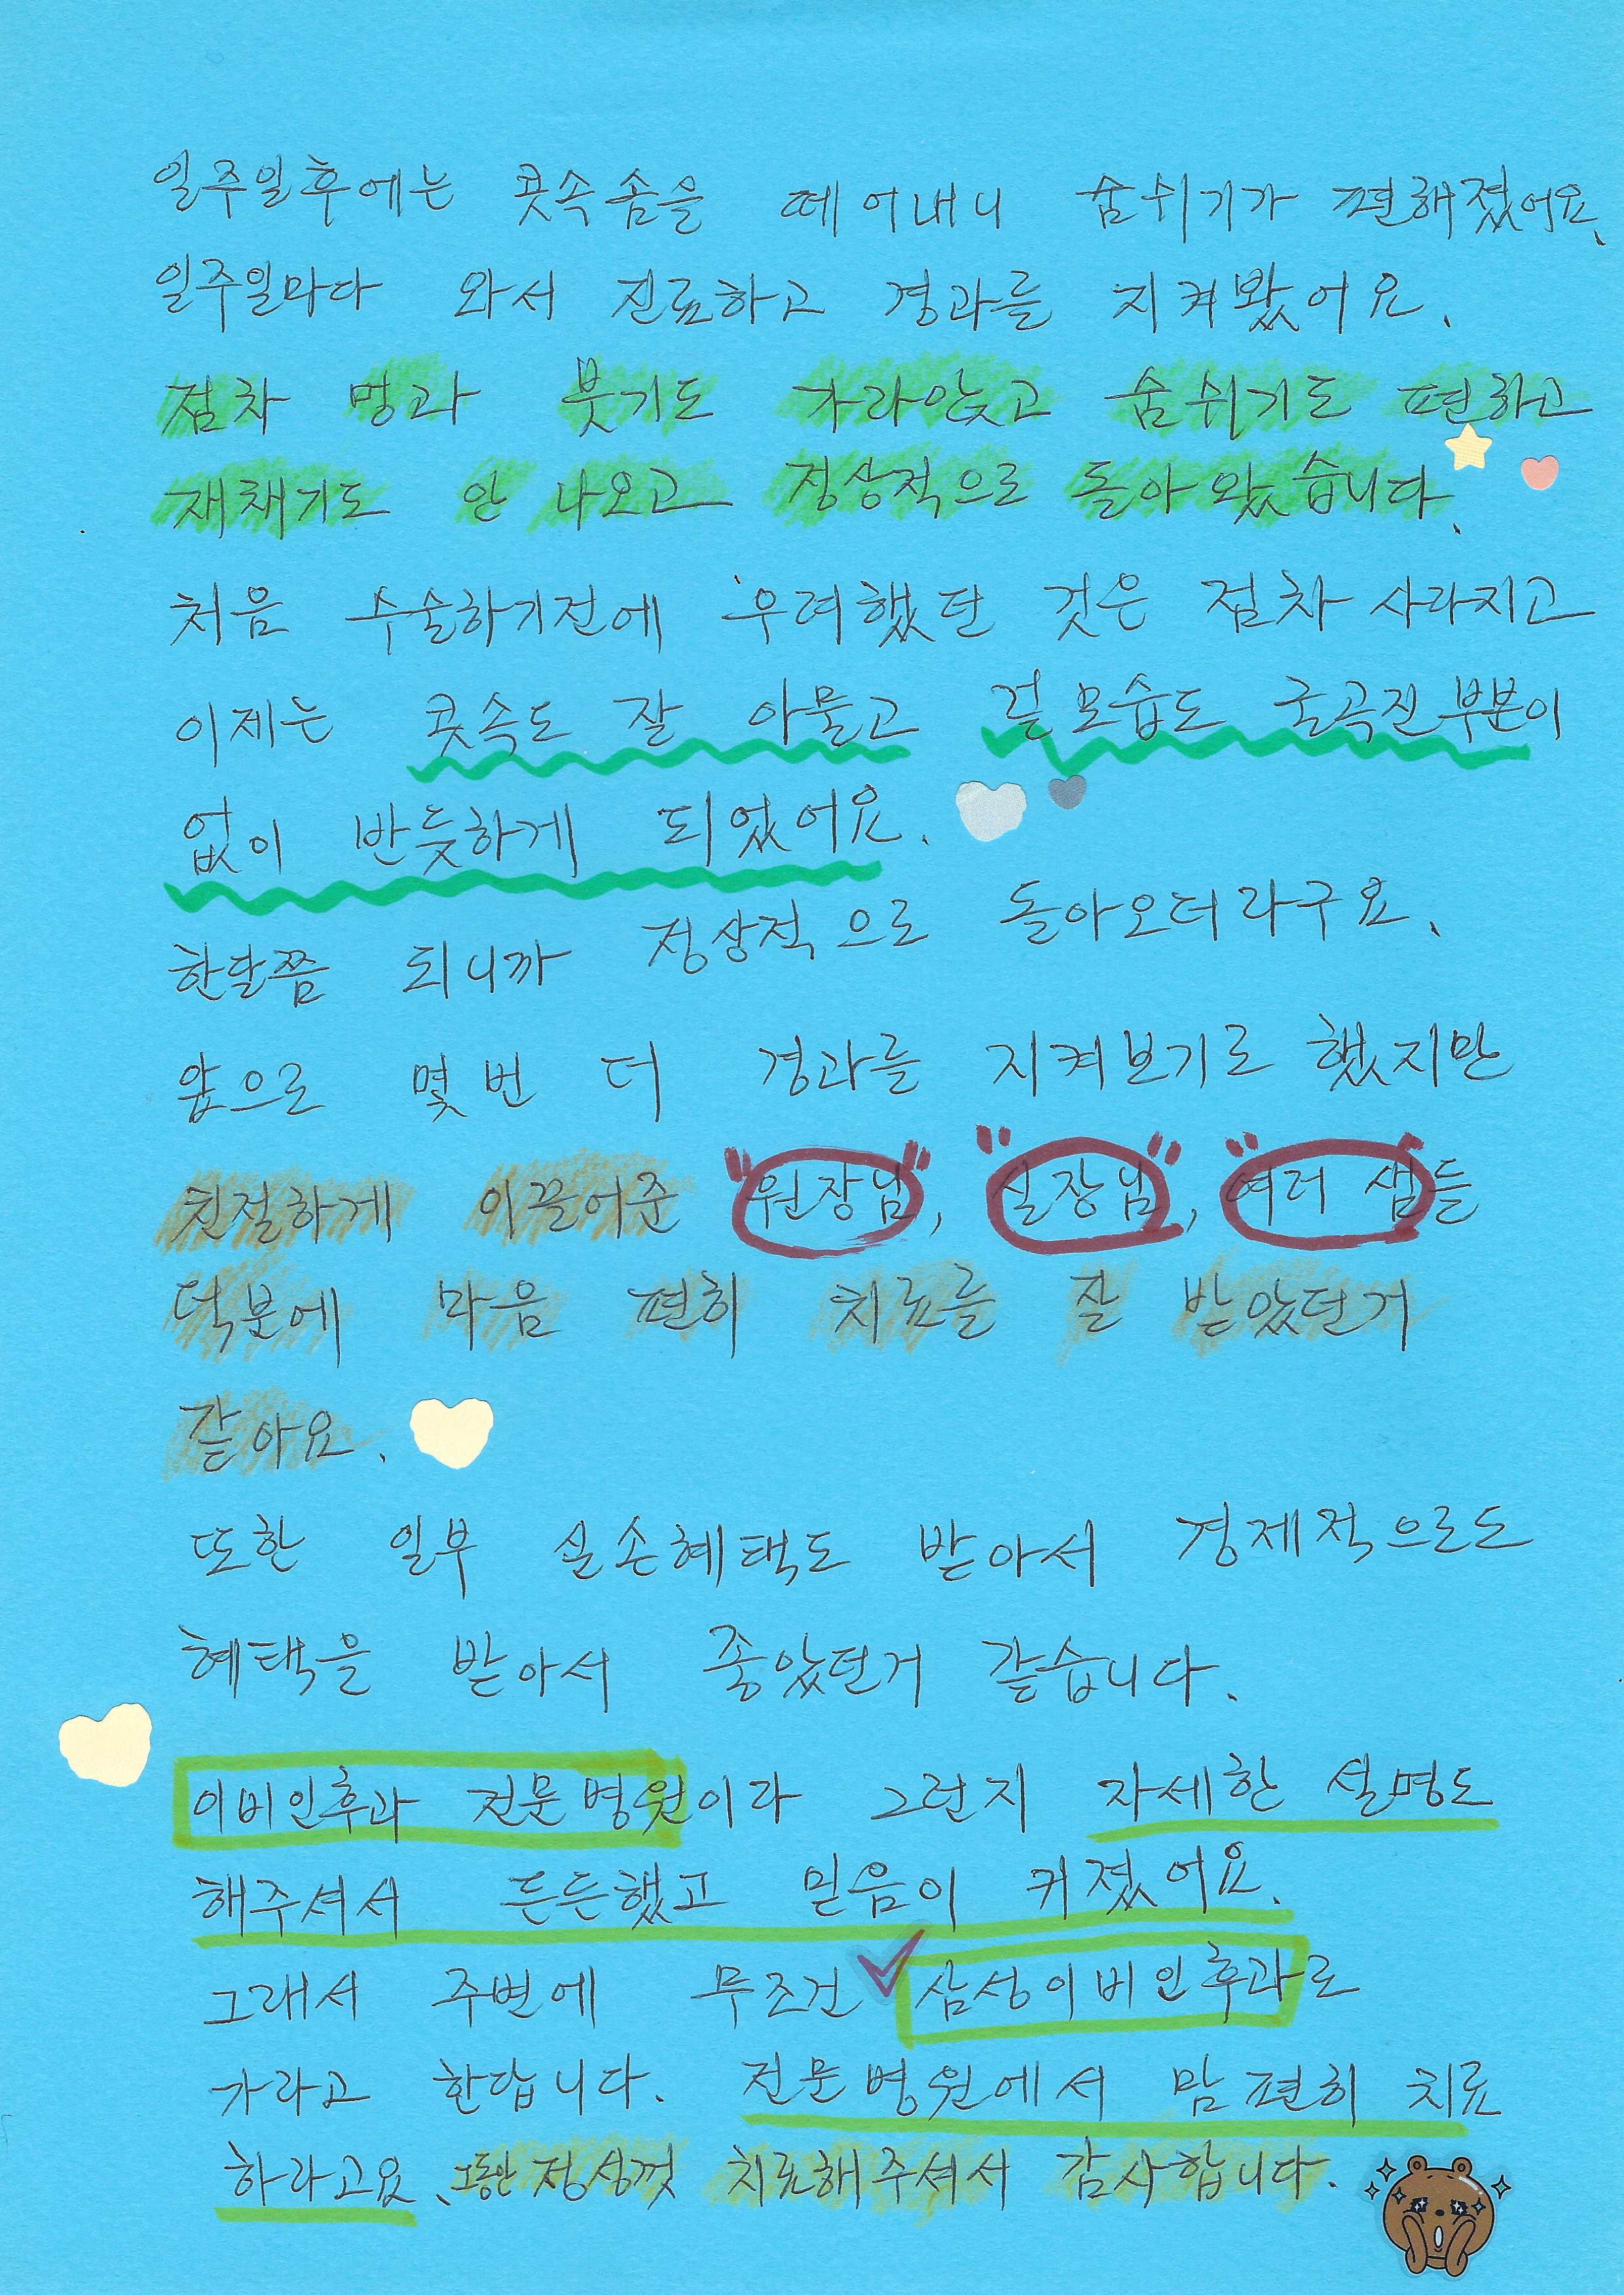 일주일후에는 콧속솜을 떼어내니 숨쉬기가 편해졌어요.
일주일마다 와서 진료하고 경과를 지켜봤어요.
점차 멍과 붓기도 가라앉고 숨쉬기도 편하고
재채기도 안 나오고 정상적으로 돌아왔습니다.
처음 수술하기전에 우려했던 것은 점차 사라지고
이제는 콧속도 잘 아물고 겉모습도 굴곡진 부분이
없이 반듯하게 되었어요.
한달쯤 되니까 정상적으로 돌아오더라구요.
앞으로 몇번 더 경과를 지켜보기로 했지만
친절하게 이끌어준 "원장님", "실장님", "여러 샘"들
덕분에 마음 편히 치료를 잘 받았던거
같아요.
또한 일부 실손혜택도 받아서 경제적으로도
혜택을 받아서 좋았던거 같습니다.
이비인후과 전문병원이라 그런지 자세한 설명도
해주셔서 든든했고 믿음이 커졌어요.
그래서 주변에 무조건 삼성이비인후과로
가라고 한답니다. 전문병원에서 맘편히 치료
하라고요. 그동안 정성껏 치료해주셔서 감사합니다.